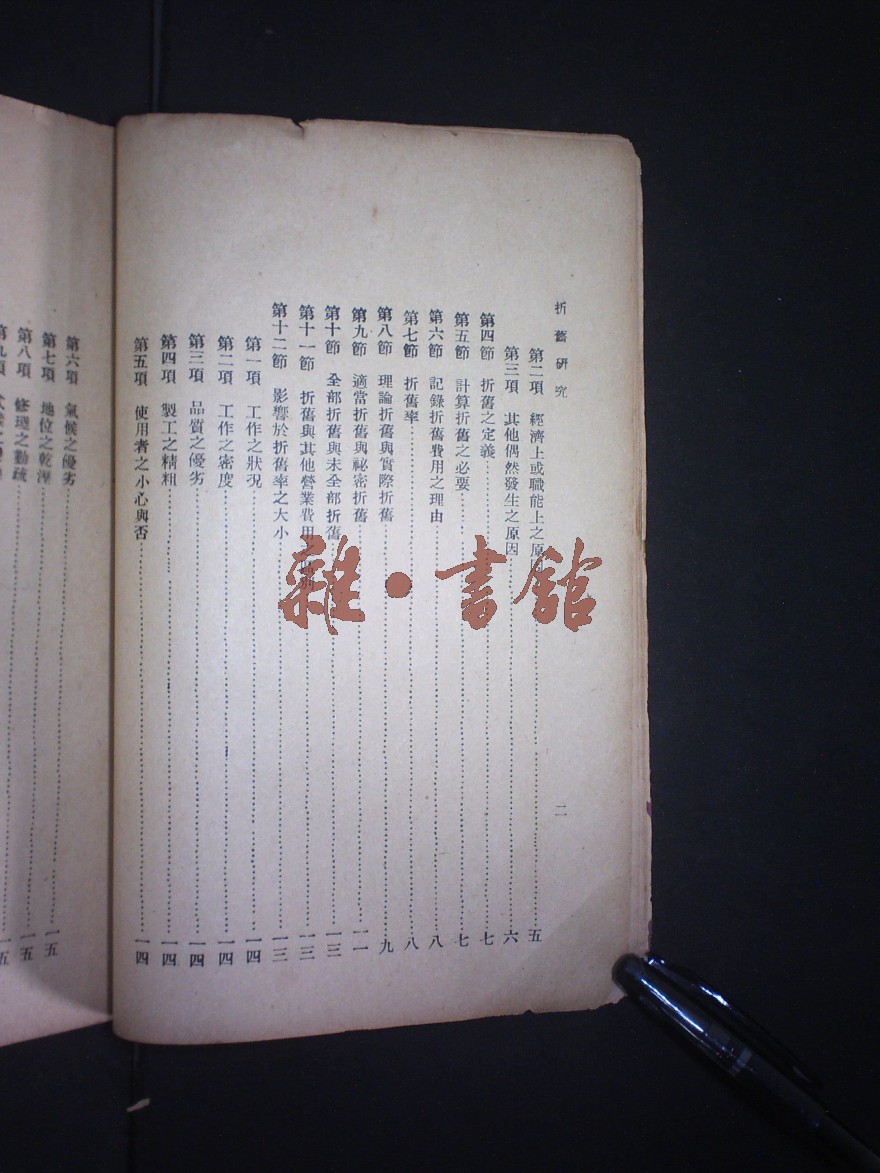 折舊研究
二
第二項 經濟上或職能上之原因 五
第三項 其他偶然發生之原因 六
第四節 折舊之定義 七
第五節 計算折舊之必要 七
第六節 記錄折舊費用之理由 八
第七節 折舊率 八
第八節 理論折舊與實際折舊 九
第九節 適當折舊與祕密折舊 一一
第十節 全部折舊與未全部折舊 一三
第十一節 折舊與其他營業費用之 一三
第十二節 影響於折舊率之大小 一三
第一項 工作之狀况 一四
第二項 工作之密度 一四
第三項 品質之優劣 一四
第四項 製工之精粗 一四
第五項 使用者之小心與否 一四
第六項 氣候之優劣 一五
第七項 地位之乾溼 一五
第八項 修理之勤疏 一五
第九項
雜·書館